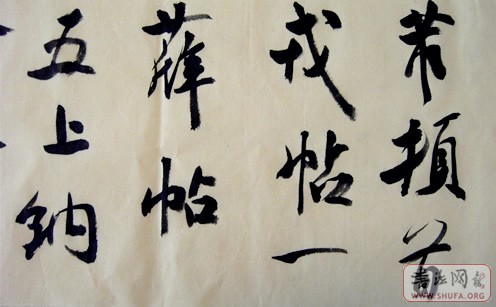 芾頓首
戎帖一
薛帖
五上納
書法网
WWW.SHUFA.ORG